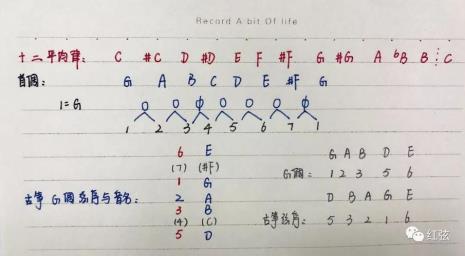 Record A bit Of life
十二平均律: C #C D #D E F #F G #G A bB B C
首调: G A B C D E #F G
1=G
1 2 3 4 5 6 7 1
6 E
(7) (#F)
1 G
2 A
3 B
(4) (C)
5 D
古筝G调弦序与音名
G A B D E
G调: 1 2 3 5 6
D B A G E
古筝弦序: 5 3 2 1 6
红弦